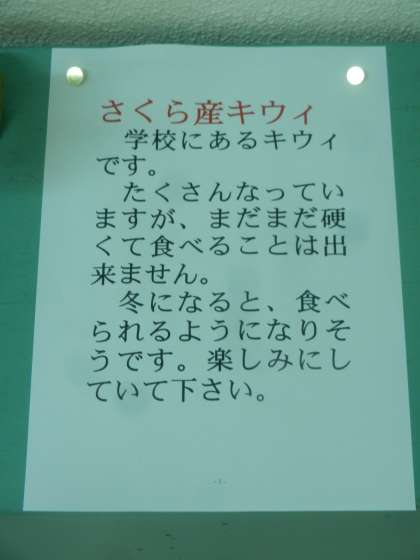 さくら産キウィ
学校にあるキウィ
です。
たくさんなってい
ますが、まだまだ硬
くて食べることは出
来ません。
冬になると、食べ
られるようになりそ
うです。楽しみにし
ていて下さい。
-1-